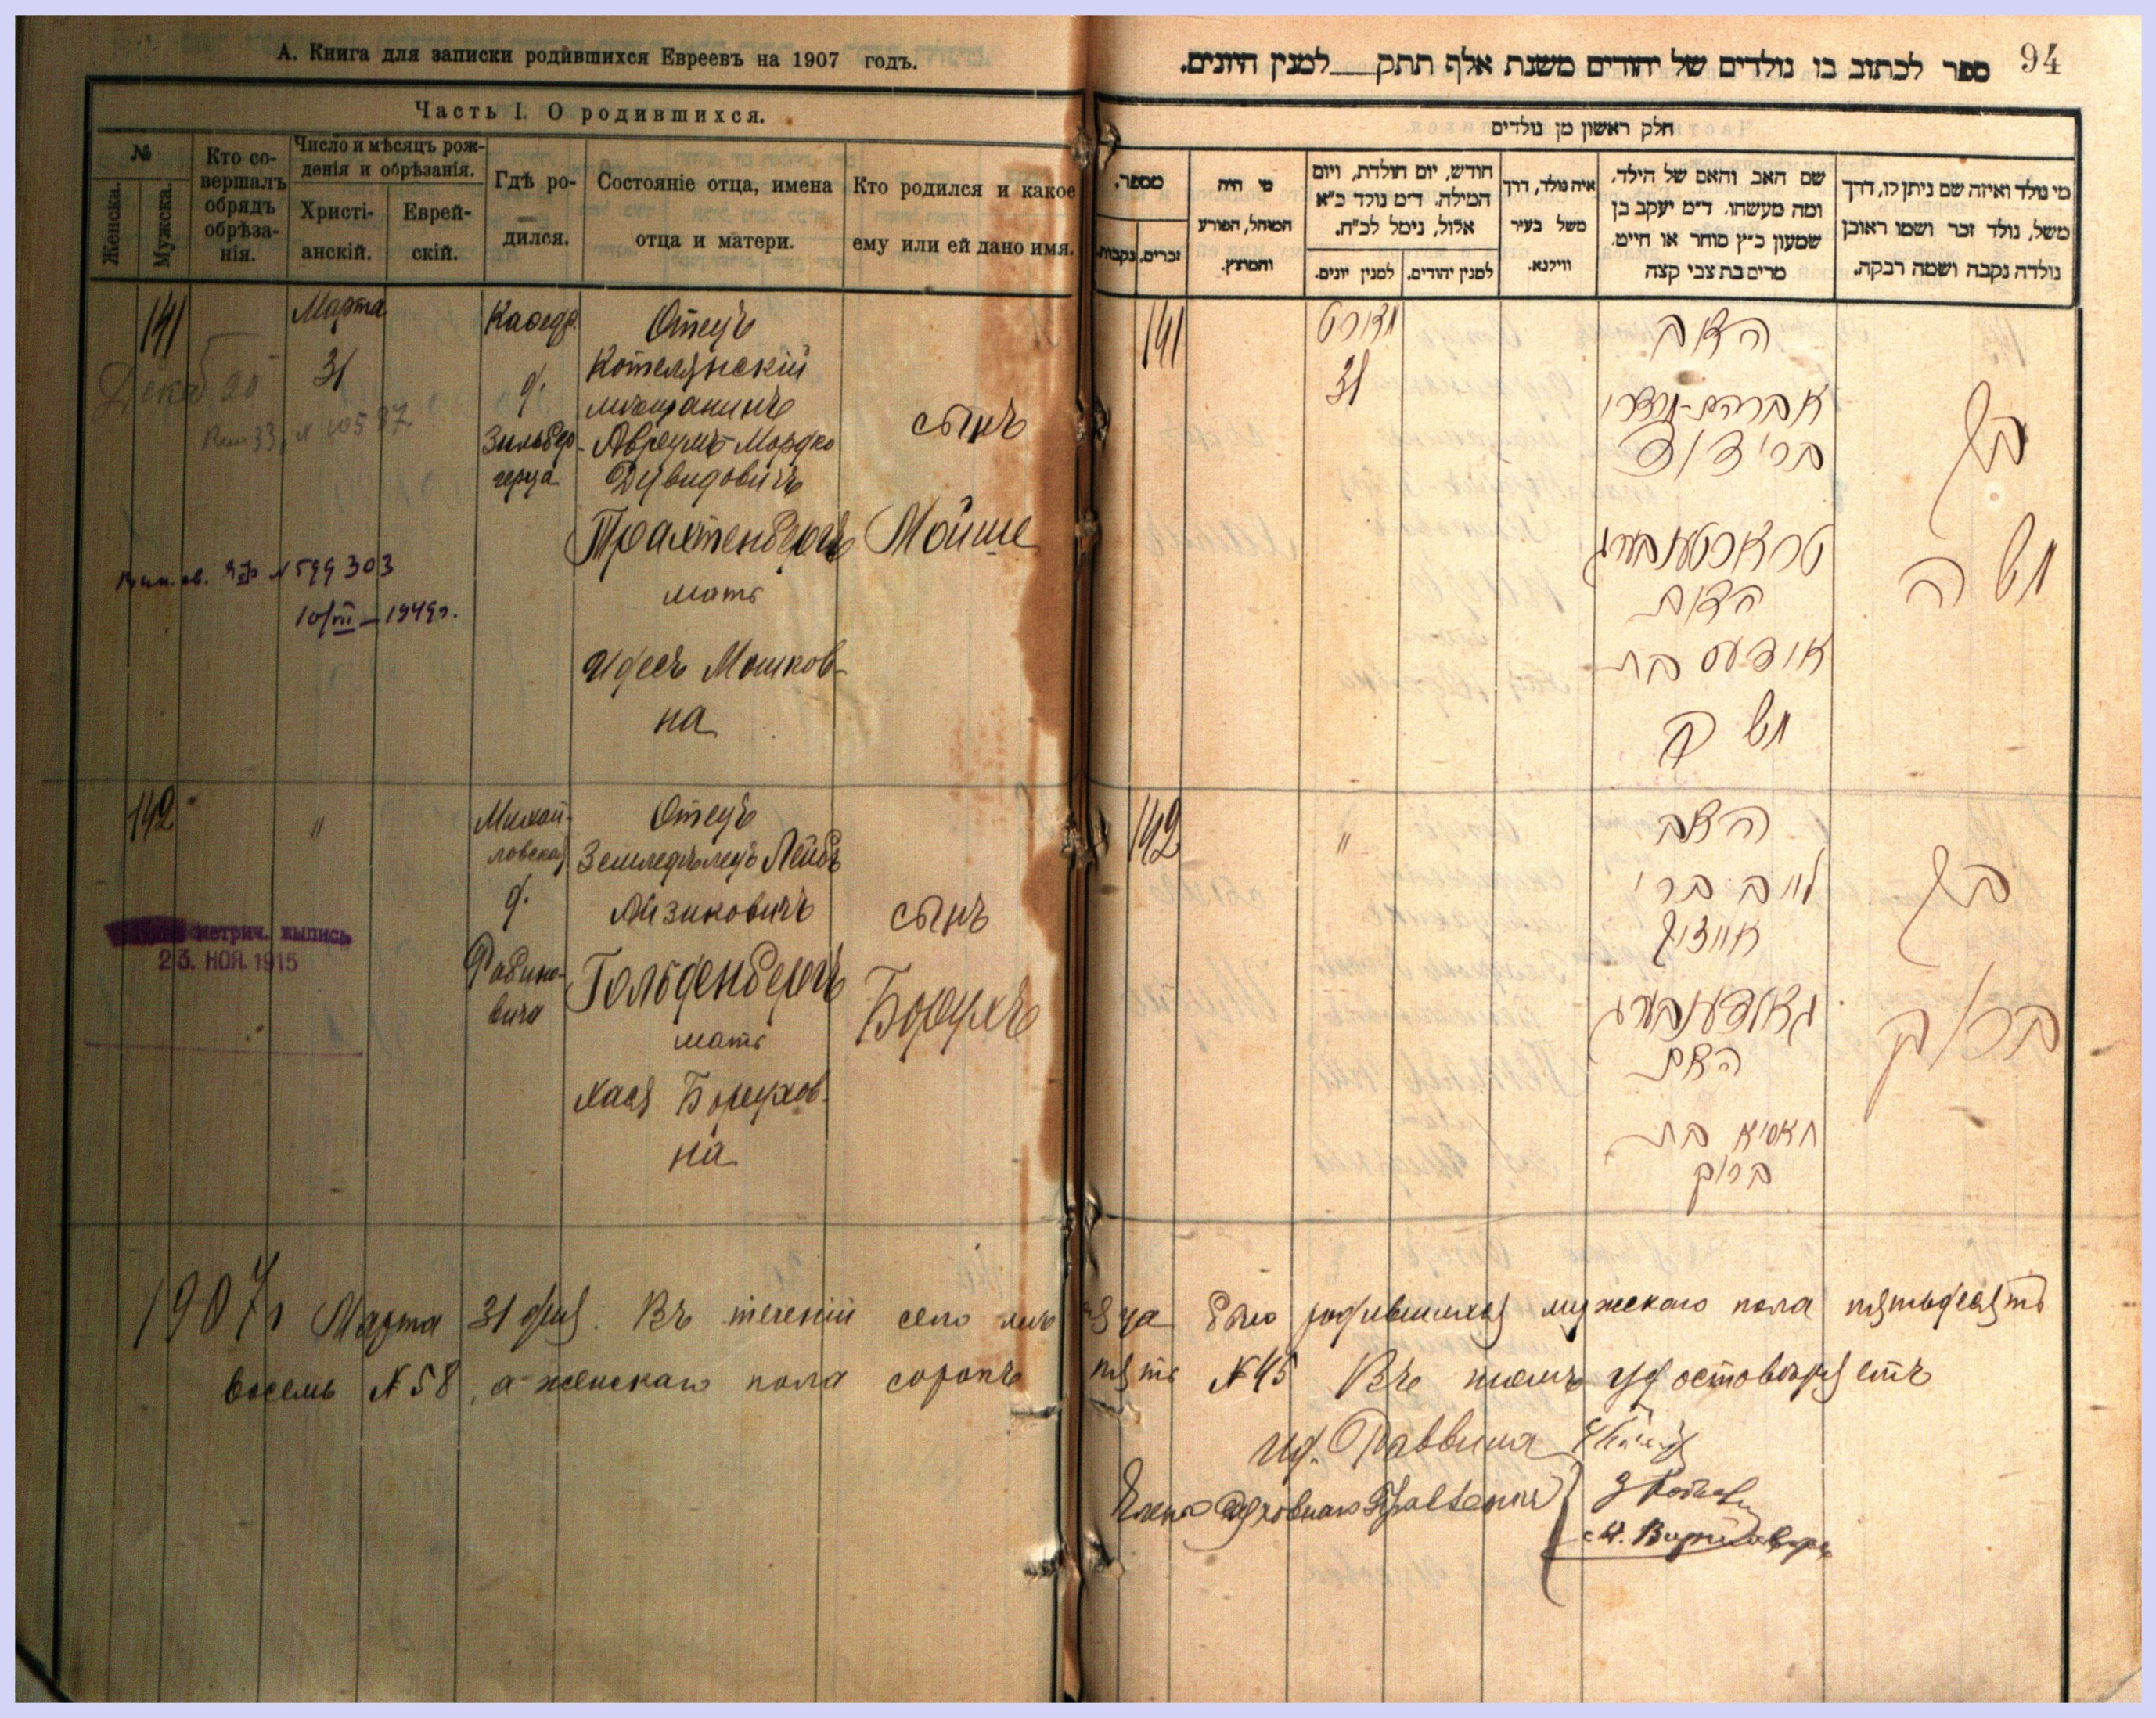 А. Книга для записки родившихся Евреевъ на 1907 годъ.
Часть I. О родившихся.
№
Женска.
Мужска.
Кто со-
вершалъ
обрядъ
обрѣза-
нія.
Число и мѣсяцъ рож-
денія и обрѣзанія.
Христі-
анскій.
Еврей-
скій.
Гдѣ ро-
дился.
Состояніе отца, имена
отца и матери.
Кто родился и какое
ему или ей дано имя.
141
Марта
31
Каѳедр.
д.
Зильбер-
герца
Отецъ
Котелянскій
мѣщанинъ
Авреумъ-Мордко
Дувидовичъ
Трахтенбергъ
мать
Идесъ Мошков-
на
сынъ
Мойше
Декаб 20
№ 10537
№ 599303
10/VII – 1949г.
142
"
Михай-
ловская
д.
Рабино-
вича
Отецъ
Земледѣлецъ Лейбъ
Айзиковичъ
Гольденбергъ
мать
Хася Борухов-
на
сынъ
Борухъ
метрич. выпись
23. НОЯ. 1915
94
ספר לכתוב בו נולדים של יהודים משנת אלף תתק למנין היונים.
חלק ראשון מן נולדים
מספר.
זכרים.
נקבות.
מי היה
המוהל, הפורע
והמוצץ.
חודש, יום הולדת, ויום
המילה. ד״מ נולד כ״א
אלול, נימל לכ״ח.
למנין יונים.
למנין יהודים.
איה נולד, דרך
משל בעיר
ווילנא.
שם האב והאם של הילד,
ומה מעשהו. ד״מ יעקב בן
שמעון כ״ץ סוחר או חייט,
מרים בת צבי קצה
מי נולד ואיזה שם ניתן לו, דרך
משל, נולד זכר ושמו ראובן
נולדה נקבה ושמה רבקה.
141
מארט
31
האב
אברהם-מרדכי
בר׳ דוד
טראכטענבערג
האם
אידעס בת
משה
בן
משה
142
"
האב
לייב בר׳
אייזיק
גאלדענבערג
האם
חאסיא בת
ברוך
בן
ברוך
1907г Марта 31 дня. Въ теченіи сего мѣсяца было родившихся мужскаго пола пятьдесятъ
восемь № 58, а женскаго пола сорокъ пять № 45 Въ чемъ удостовѣряетъ
И.д. Раввина
Члены Духовнаго Правленія